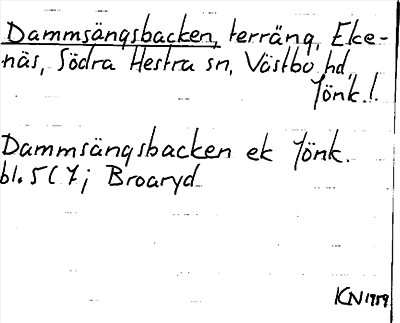 Dammsängsbacken, terräng, Eke-
näs, Södra Hestra sn, Västbo hd,
Jönk.l.
Dammsängsbacken ek Jönk.
bl. 5 C 7 j Broaryd
KN 1959